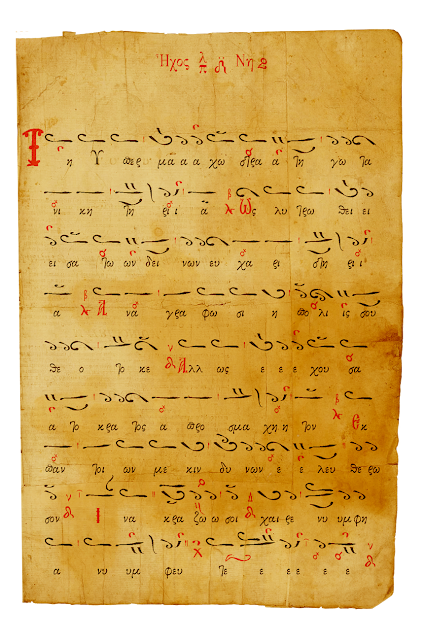 Ἦχος λ π δ Νη
Τη Υ περ μα α α χω στρα α τη γω τα
νι κη τη ρι ι α Ως λυ τρω θει ει
ει σα τω ων δει νων ευ χα ρι στη ρι ι
α Α να γρα φω σι η πο λι ις σου
θε ο το κε Αλλ ως ε ε ε χου σα
α το κρα τος α προ σμα χη η τον Εκ
παν τοι ων με κιν δυ νων ε ε λευ θε ρω
σον Ι να κρα ζω ω σοι χαι ρε νυ υμ φη
α νυ υμ φευ τε ε ε ε ε